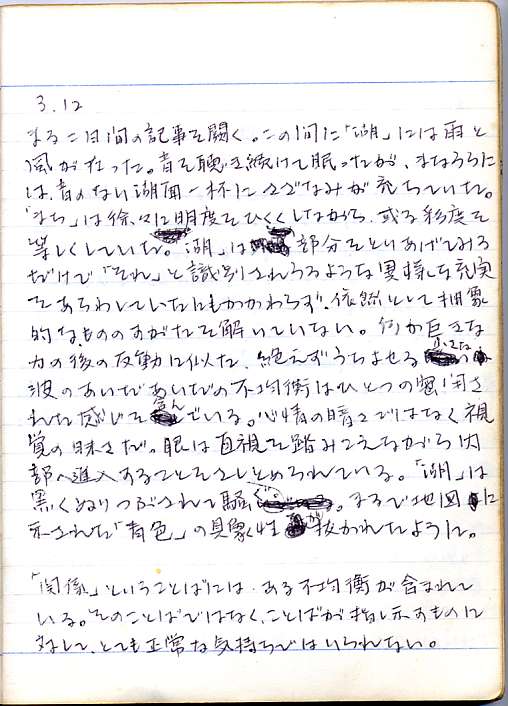 3.12
まる二日間の記事を開く。この間に「湖」には雨と
風がたった。音を聴き続けて眠ったが、まなうらに
は、音のない湖面一杯にさざなみが充ちていた。
「まち」は徐々に明度をひくくしながら、或る彩度を
等しくしていた。「湖」は 部分をとりあげてみる
だけで「それ」と識別されうるような異様な充実
をあらわしていたにもかかわらず、依然として抽象
的なもののすがたを解いていない。何か巨きな
力の後の反動に似た、絶えずうちよせる 小さな
波のあいだあいだの不均衡はひとつの窓 された
感じを 含んでいる。心情の暗さではなく視
覚の昧さだ。眼は直視を踏みこえながら内
部へ進入することをさしとめられている。「湖」は
黒くぬりつぶされて騒ぐ。まるで地図に
示された「青色」の具象性が抜かれたように。
「関係」ということばには、ある不均衡が含まれて
いる。そのことばではなく、ことばが指し示すものに
対して、とても正常な気持ちではいられない。